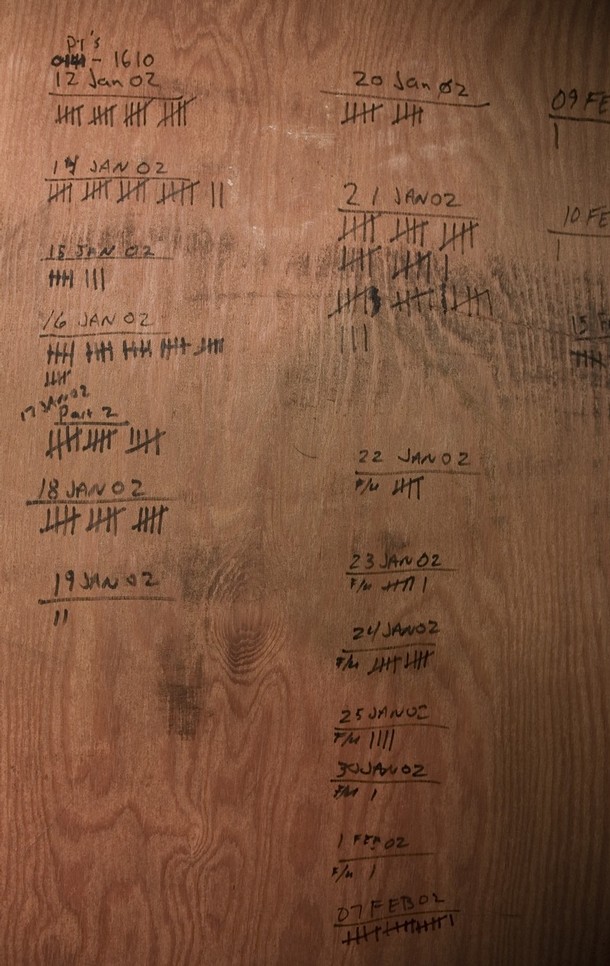 PT's
- 1610
12 Jan 02
14 JAN 02
15 JAN 02
16 JAN 02
17 JAN 02
Part 2
18 JAN 02
19 JAN 02
20 Jan 02
21 JAN 02
22 JAN 02
F/U
23 JAN 02
F/U
24 JAN 02
F/U
25 JAN 02
F/U
30 JAN 02
F/U
1 FEB 02
F/U
07 FEB 02
09 FE
10 FE
15 F